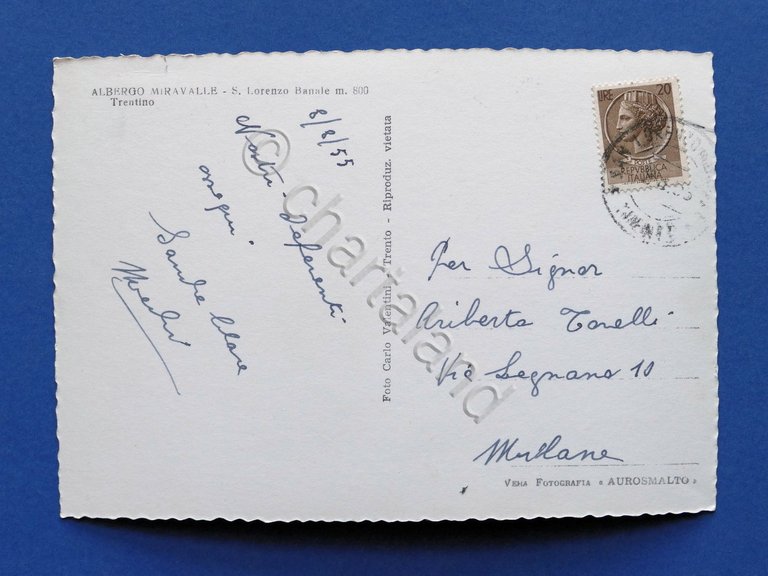 ALBERGO MIRAVALLE - S. Lorenzo Banale m. 800
Trentino
8/8/55
Nostri deferenti
ossequi.
Sandra
Foto Carlo Valentini - Trento - Riproduz. vietata
LIRE 20
REPVBBLICA
ITALIANA
Per Signor
Ariberto Tonelli
Via Legnano 10
Milano
VERA FOTOGRAFIA « AUROSMALTO »
© chartaland